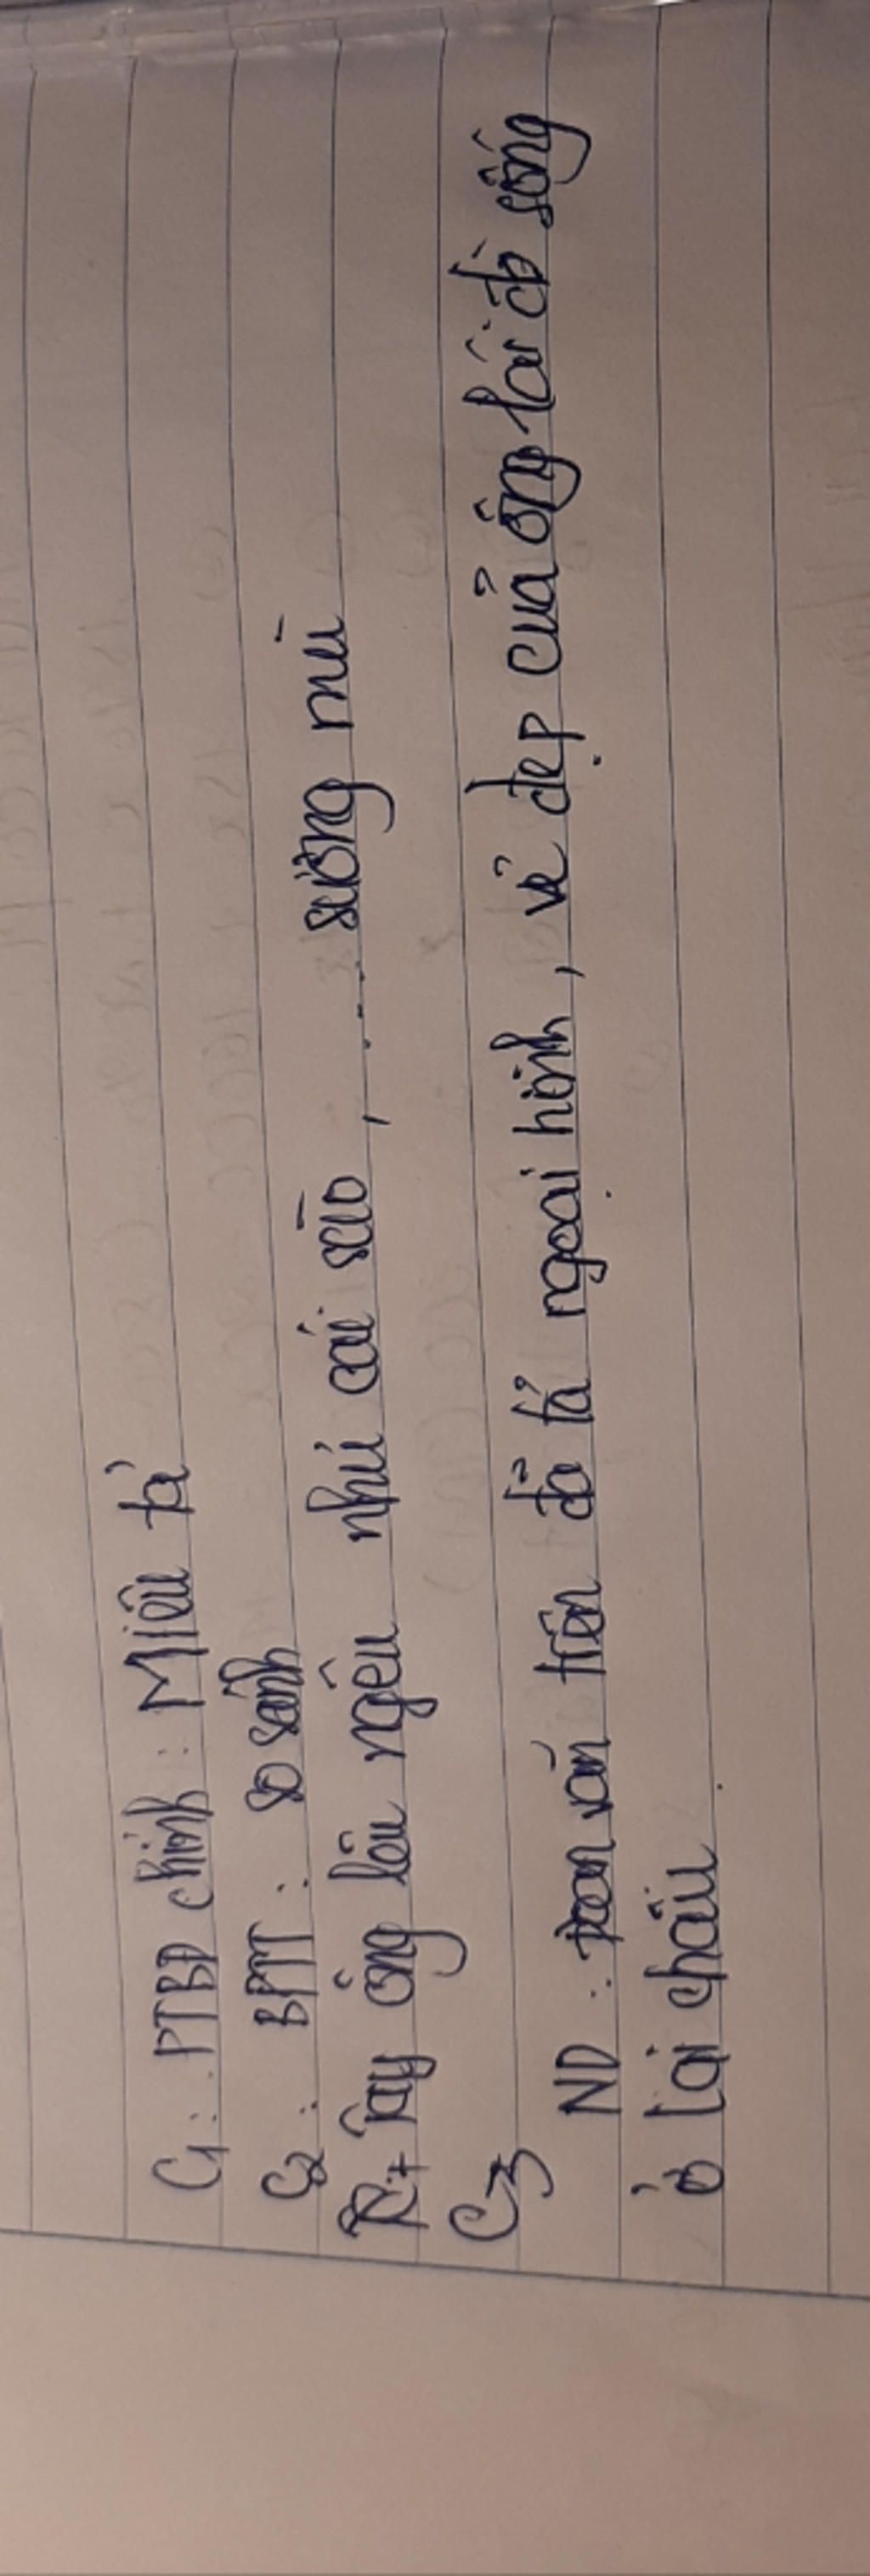 C1: PTBĐ chính: Miêu tả
C2: BPTT: so sánh
+ Tay ông lêu ngêu như cái sào, .... sương mù
C3
ND: Đoạn văn trên đã tả ngoại hình, vẻ đẹp của ông lái đò sông
ở lai châu